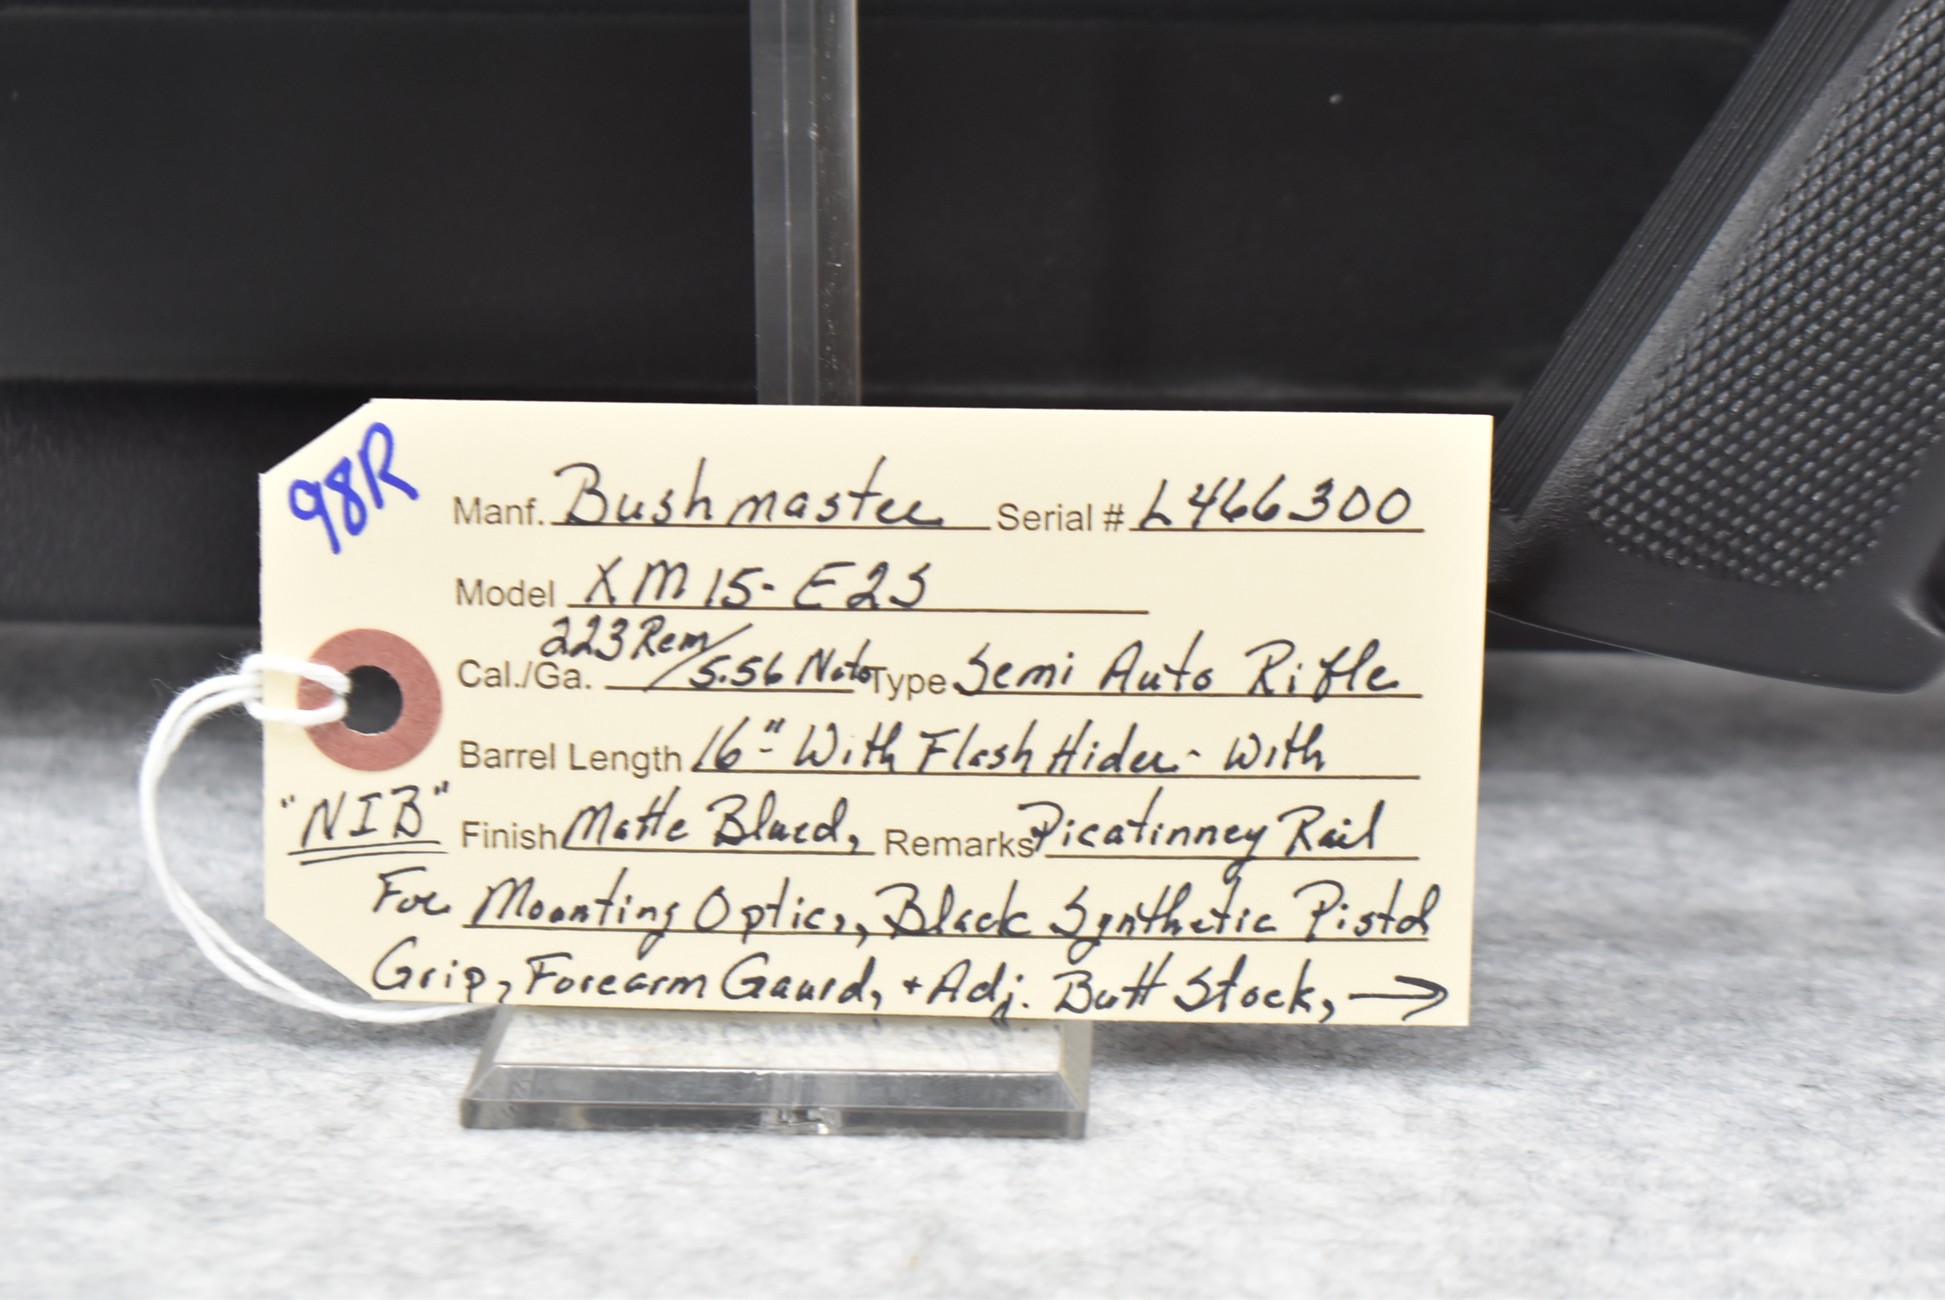 98R
Manf. Bushmaster Serial # L466300
Model XM15-E2S
223 Rem/
Cal./Ga. 5.56 Nato Type Semi Auto Rifle
Barrel Length 16" With Flash Hider - With
"NIB" Finish Matte Blued, Remarks Picatinney Rail
For Mounting Optics, Black Synthetic Pistol
Grip, Forearm Gaurd, + Adj. Butt Stock, →